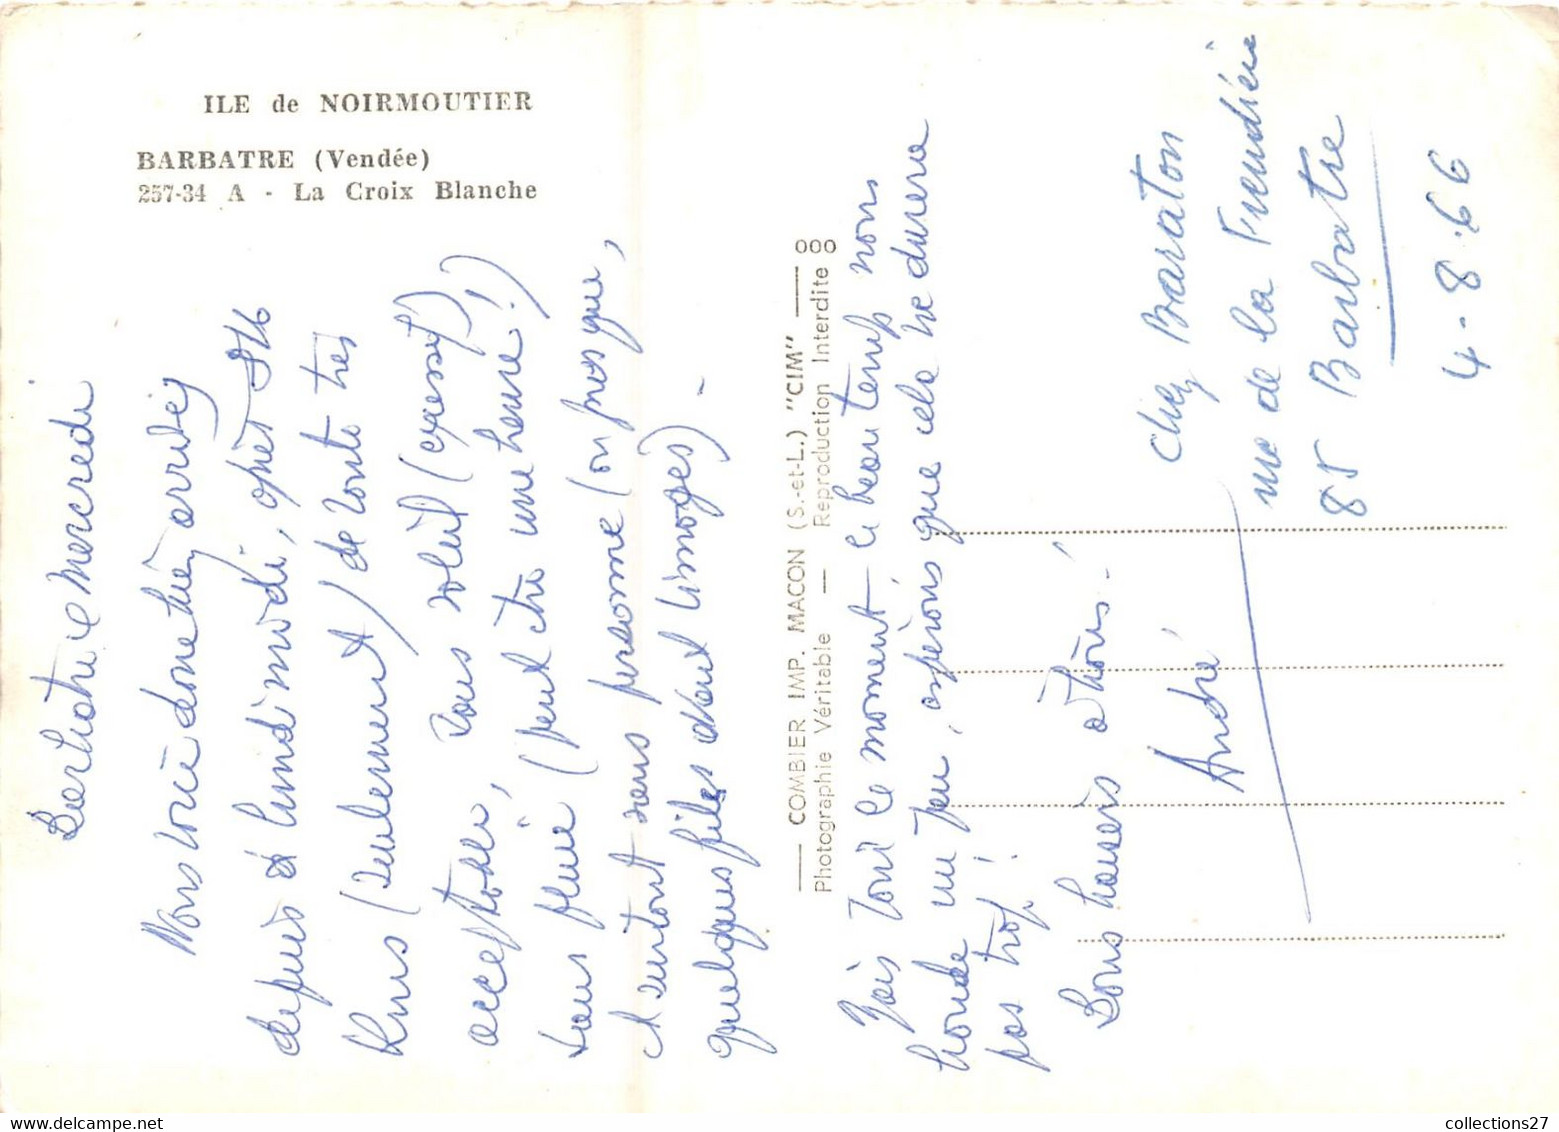 ILE de NOIRMOUTIER
BARBATRE (Vendée)
257-34 A - La Croix Blanche
Barbatre ce mercredi
Nous voici donc bien arrivés
depuis lundi midi, après 8h
plus (seulement) de route très
acceptable, sans soleil (excessif)
sans pluie (peut être une heure!)
et surtout sans personne (ou presque,
quelques files avant Limoges) -
COMBIER IMP. MACON (S.-et-L.) "CIM"
Photographie Véritable — Reproduction Interdite
000
Mais pour le moment, le beau temps nous
boude un peu, espérons que cela ne durera
pas trop!
Bons baisers à tous.
André
Chez Baraton
rue de la
85 Barbatre
4-8-66
collections27